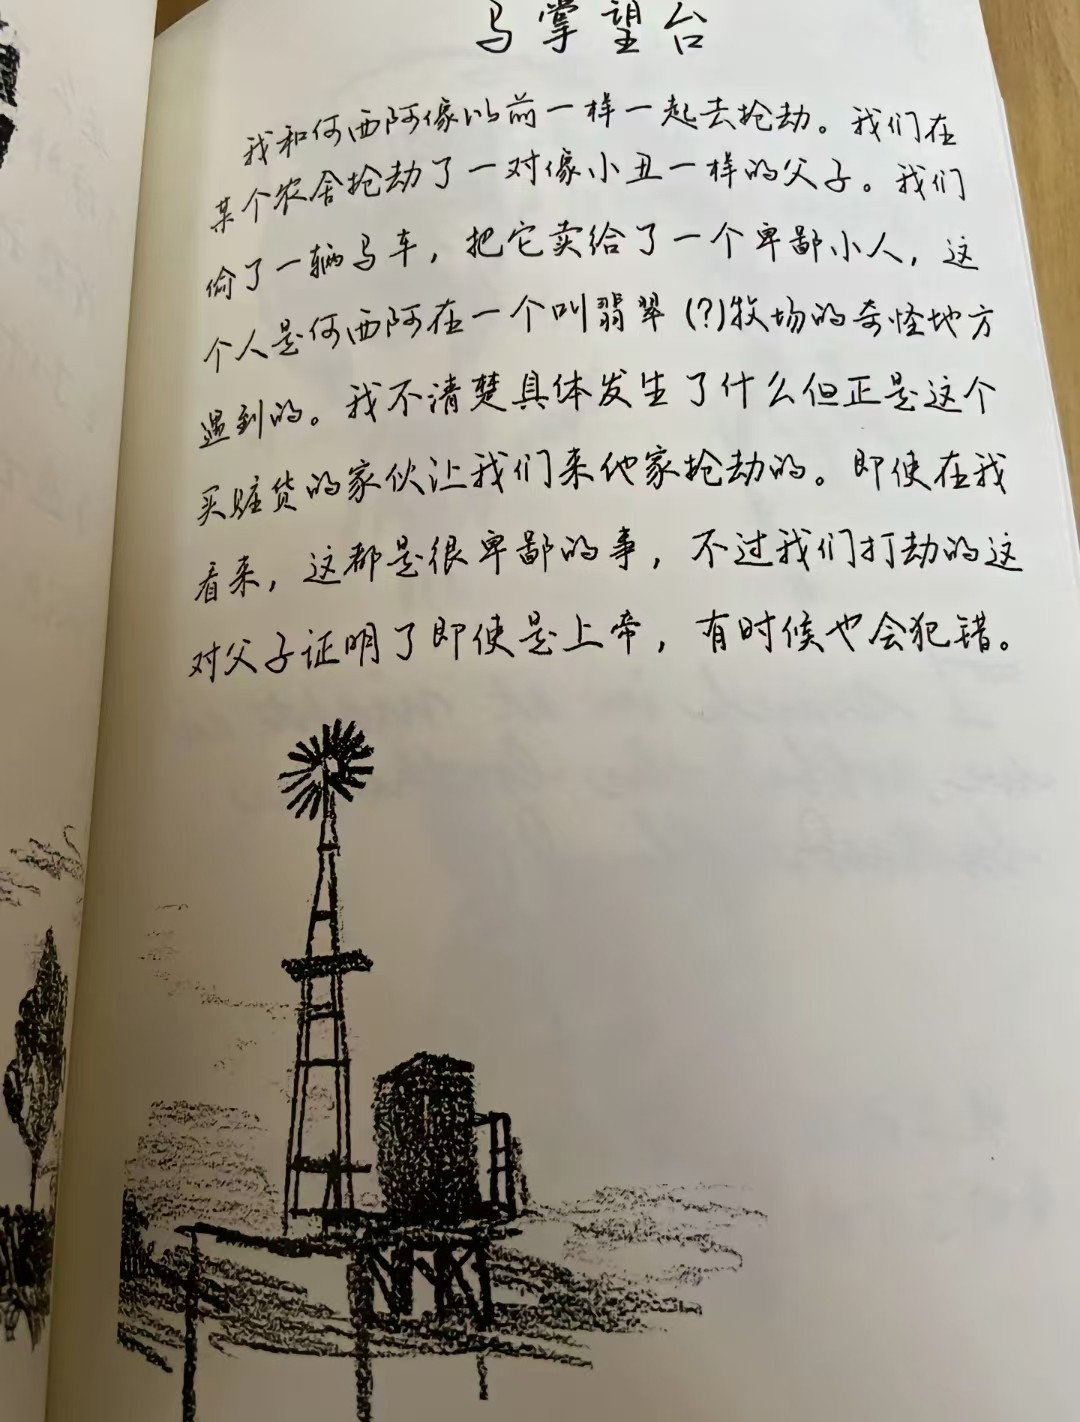 马掌望台
我和何西阿像以前一样一起去抢劫。我们在
某个农舍抢劫了一对像小丑一样的父子。我们
偷了一辆马车，把它卖给了一个卑鄙小人，这
个人是何西阿在一个叫翡翠(?)牧场的奇怪地方
遇到的。我不清楚具体发生了什么但正是这个
买赃货的家伙让我们来他家抢劫的。即使在我
看来，这都是很卑鄙的事，不过我们打劫的这
对父子证明了即使是上帝，有时候也会犯错。